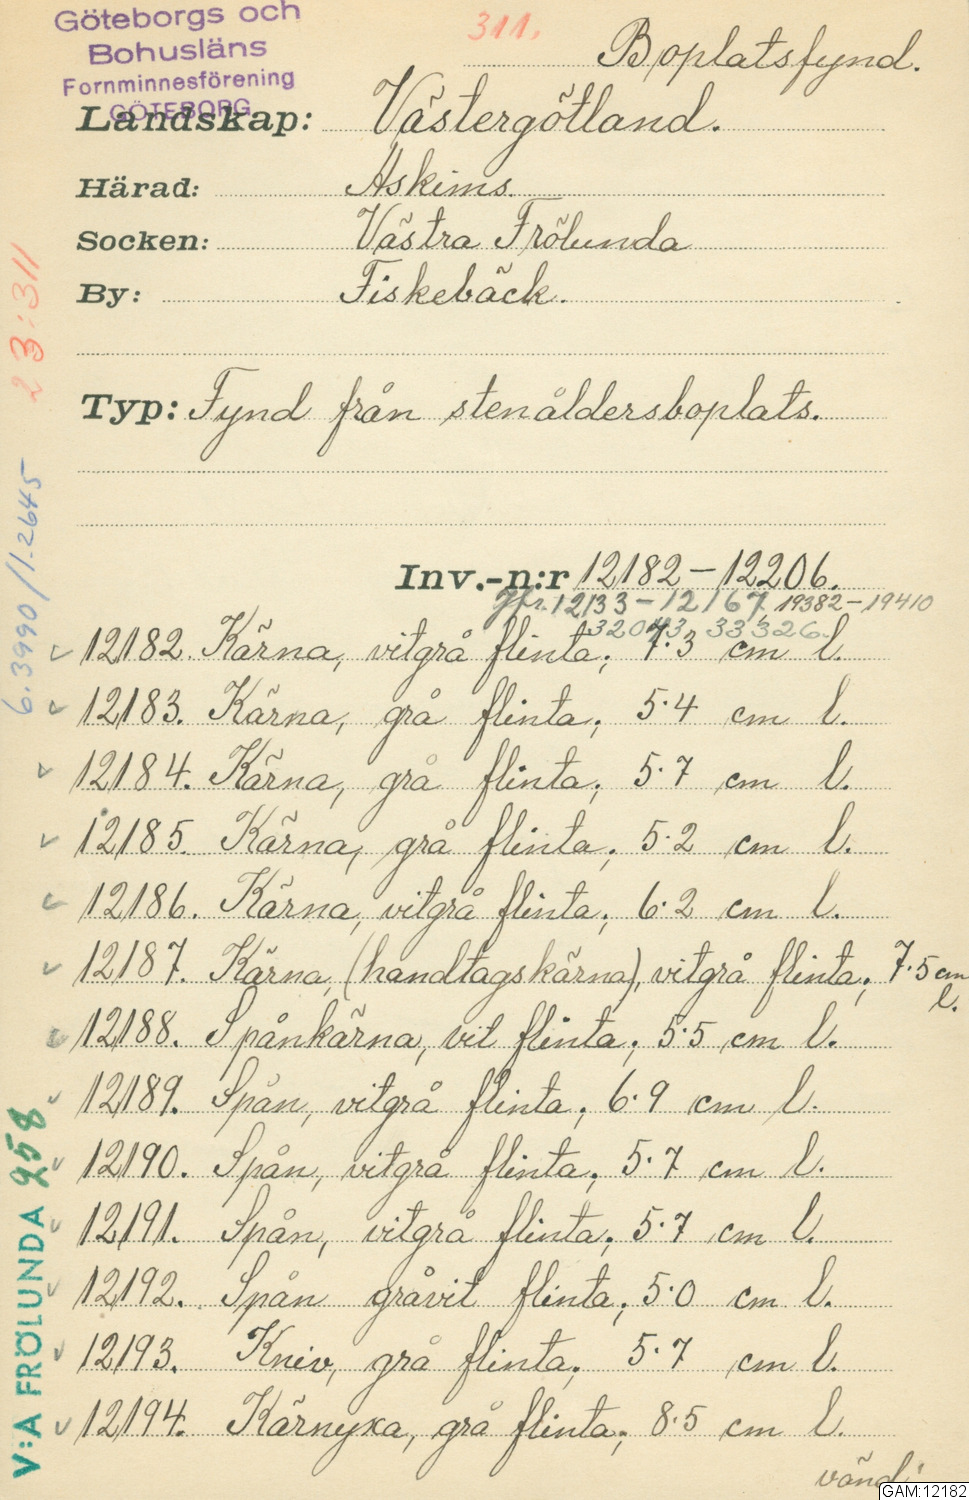 Göteborgs och
Bohusläns
Fornminnesförening
GÖTEBORG
311.
Boplatsfynd.
Landskap: Västergötland.
Härad: Askims.
Socken: Västra Frölunda
By: Fiskebäck.
Typ: Fynd från stenåldersboplats.
Inv.-n:r 12182-12206.
Jfr. 12133-12167, 19382-19410
32043, 33326.
12182. Kärna, vitgrå flinta; 7.3 cm l.
12183. Kärna, grå flinta; 5.4 cm l.
12184. Kärna, grå flinta; 5.7 cm l.
12185. Kärna, grå flinta; 5.2 cm l.
12186. Kärna, vitgrå flinta; 6.2 cm l.
12187. Kärna, (handtagskärna), vitgrå flinta; 7.5 cm
l.
12188. Spånkärna, vit flinta; 5.5 cm l.
12189. Spån, vitgrå flinta; 6.9 cm l.
12190. Spån, vitgrå flinta; 5.7 cm l.
12191. Spån, vitgrå flinta; 5.7 cm l.
12192. Spån gråvit flinta; 5.0 cm l.
12193. Kniv, grå flinta; 5.7 cm l.
12194. Kärnyxa, grå flinta; 8.5 cm l.
vänd!
23:311
6.3990/1.2645
V:A FRÖLUNDA 258
GAM:12182